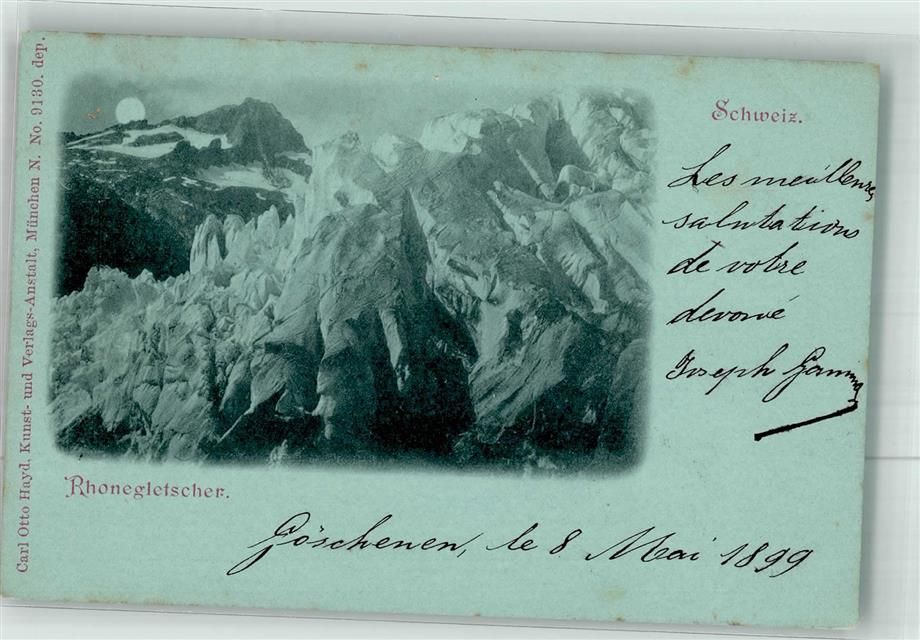 Schweiz.
Les meilleures
salutations
de votre
devoué
Joseph
Rhonegletscher.
Göschenen, le 8 Mai 1899
Carl Otto Hayd, Kunst- und Verlags-Anstalt, München N. No. 9130. dep.